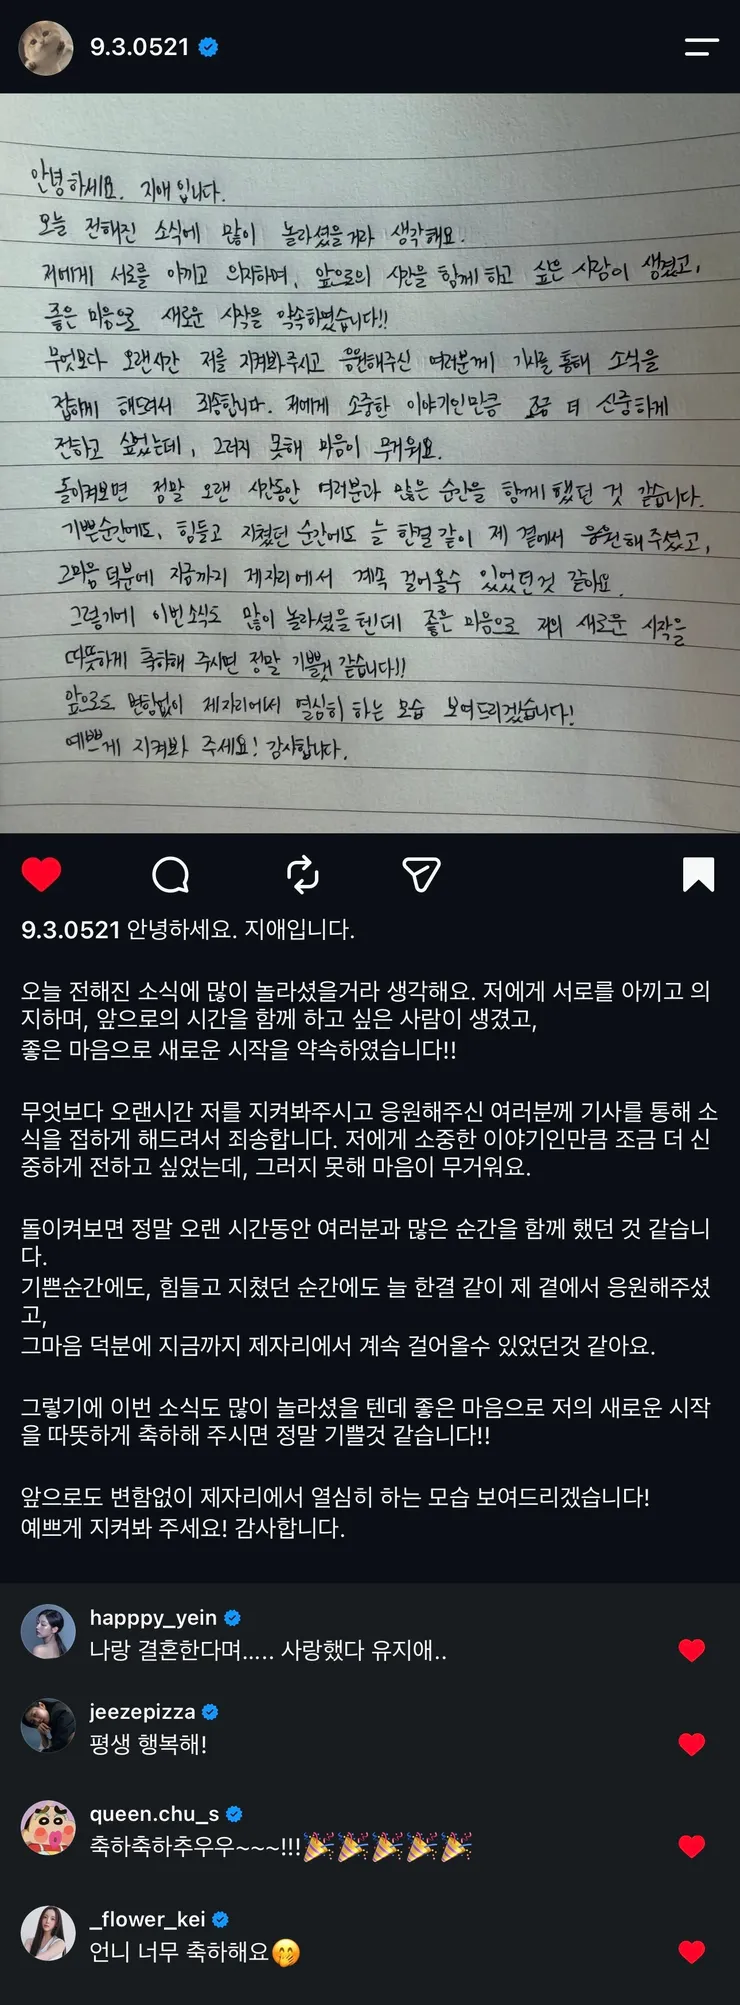 9.3.0521
안녕하세요. 지애입니다.
오늘 전해진 소식에 많이 놀라셨을거라 생각해요.
저에게 서로를 아끼고 의지하며, 앞으로의 시간을 함께 하고 싶은 사람이 생겼고,
좋은 마음으로 새로운 시작을 약속하였습니다!!
무엇보다 오랜시간 저를 지켜봐주시고 응원해주신 여러분께 기사를 통해 소식을
접하게 해드려서 죄송합니다. 저에게 소중한 이야기인만큼 조금 더 신중하게
전하고 싶었는데, 그러지 못해 마음이 무거워요.
돌이켜보면 정말 오랜 시간동안 여러분과 많은 순간을 함께 했던 것 같습니다.
기쁜순간에도, 힘들고 지쳤던 순간에도 늘 한결 같이 제 곁에서 응원해주셨고,
그마음 덕분에 지금까지 제자리에서 계속 걸어올수 있었던것 같아요.
그렇기에 이번소식도 많이 놀라셨을 텐데 좋은 마음으로 저의 새로운 시작을
따뜻하게 축하해 주시면 정말 기쁠것 같습니다!!
앞으로도 변함없이 제자리에서 열심히 하는 모습 보여드리겠습니다!
예쁘게 지켜봐 주세요! 감사합니다.
9.3.0521 안녕하세요. 지애입니다.
오늘 전해진 소식에 많이 놀라셨을거라 생각해요. 저에게 서로를 아끼고 의
지하며, 앞으로의 시간을 함께 하고 싶은 사람이 생겼고,
좋은 마음으로 새로운 시작을 약속하였습니다!!
무엇보다 오랜시간 저를 지켜봐주시고 응원해주신 여러분께 기사를 통해 소
식을 접하게 해드려서 죄송합니다. 저에게 소중한 이야기인만큼 조금 더 신
중하게 전하고 싶었는데, 그러지 못해 마음이 무거워요.
돌이켜보면 정말 오랜 시간동안 여러분과 많은 순간을 함께 했던 것 같습니
다.
기쁜순간에도, 힘들고 지쳤던 순간에도 늘 한결 같이 제 곁에서 응원해주셨
고,
그마음 덕분에 지금까지 제자리에서 계속 걸어올수 있었던것 같아요.
그렇기에 이번 소식도 많이 놀라셨을 텐데 좋은 마음으로 저의 새로운 시작
을 따뜻하게 축하해 주시면 정말 기쁠것 같습니다!!
앞으로도 변함없이 제자리에서 열심히 하는 모습 보여드리겠습니다!
예쁘게 지켜봐 주세요! 감사합니다.
happpy_yein
나랑 결혼한다며..... 사랑했다 유지애..
jeezepizza
평생 행복해!
queen.chu_s
축하축하추우우~~~!!!🎉🎉🎉🎉🎉
_flower_kei
언니 너무 축하해요🤭